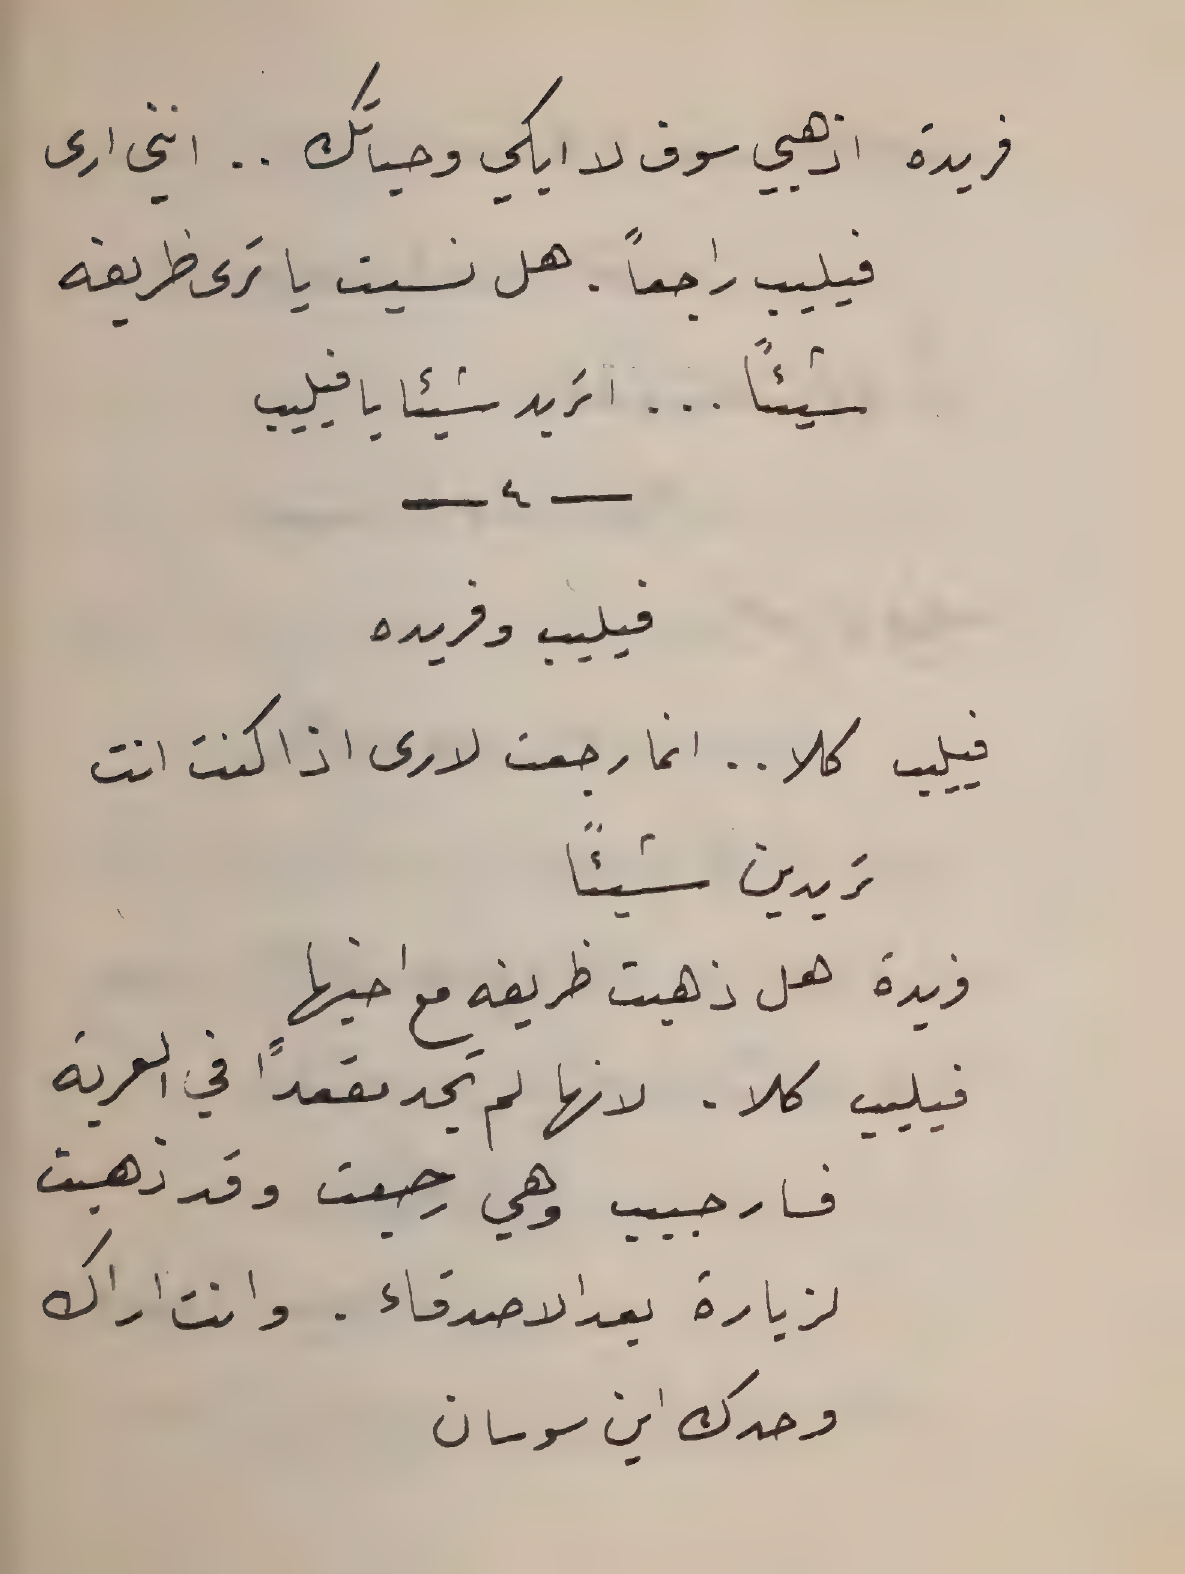 فريدة اذهبي سوف لا ابكي وحياتك .. انني ارى
فيليب راجعاً . هل نسيت يا ترى ظريفه
شيئاً ... اتريد شيئا يا فيليب
— ٤ —
فيليب وفريده
فيليب كلا .. انما رجعت لارى اذا كنت انت
تريدين شيئاً
فريدة هل ذهبت ظريفه مع اختها
فيليب كلا . لانها لم تجد مقعداً في العربة
فسار حبيب وهي رجعت وقد ذهبت
لزيارة بعد الاصدقاء . وانت اراك
وحدك اين سوسان